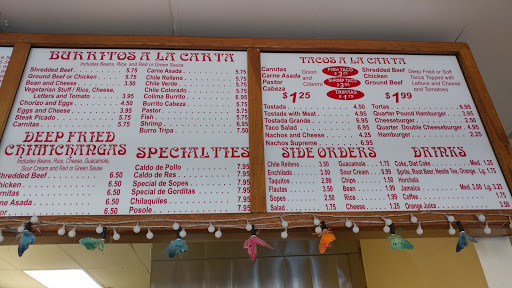 BURRITOS A LA CARTA
Includes Beans, Rice and Red or Green Sauce
Shredded Beef 5.75
Ground Beef or Chicken 5.75
Bean and Cheese 3.50
Vegetarian Stuff / Rice, Cheese,
Letters and Tomato 3.95
Chorizo and Eggs 4.50
Eggs and Cheese 3.95
Steak Picado 5.75
Carnitas 5.75
Carne Asada 5.75
Chile Relleno 5.75
Chile Verde 5.75
Chile Colorado 5.75
Colina Burrito 5.75
Burrito Cabeza 5.75
Pastor 5.75
Fish 5.75
Shrimp 6.95
Burro Tripa 7.50
DEEP FRIED
CHIMICHANGAS
Includes Beans, Rice, Cheese, Guacamole,
Sour Cream and Red or Green Sauce
Shredded Beef 6.50
Chicken 6.50
Carnitas 6.50
Carne Asada 6.50
SPECIALTIES
Caldo de Pollo 7.95
Caldo de Res 7.95
Special de Sopes 7.95
Special de Gorditas 7.95
Chilaquiles 7.95
Posole 7.95
TACOS A LA CARTA
Carnitas
Carne Asada
Pastor
Cabeza
Onion
and
Cilantro
$1.25
FISH TACO
TRIPITAS
Shredded Beef
Chicken
Ground Beef
$1.99
Deep Fried or Soft
Tacos Topped with
Lettuce and Cheese
and Tomatoes
Tostada 3.50
Tostada with Meat 4.95
Tostada Grande 6.95
Taco Salad 6.95
Nachos and Cheese 4.25
Nachos Supreme 6.95
Tortas 6.95
Quarter Pound Hamburger 3.95
Cheeseburger 2.50
Quarter Double Cheeseburger 4.95
Hamburger 2.25
SIDE ORDERS
Chile Relleno 3.50
Enchilada 3.50
Taquitos 2.99
Flautas 3.50
Sopes 2.95
Salad 1.75
Guacamole 1.75
Sour Cream .99
Chips 1.50
Bean 1.95
Rice 1.95
Cheese 1.25
DRINKS
Coke, Diet Coke Med. 1.25
Sprite, Root Beer, Nestle Tea, Orange Lg. 1.75
Horchata
Jamaica Med. 2.50 Lg. 3.25
Coffee 1.75
Orange Juice 2.50